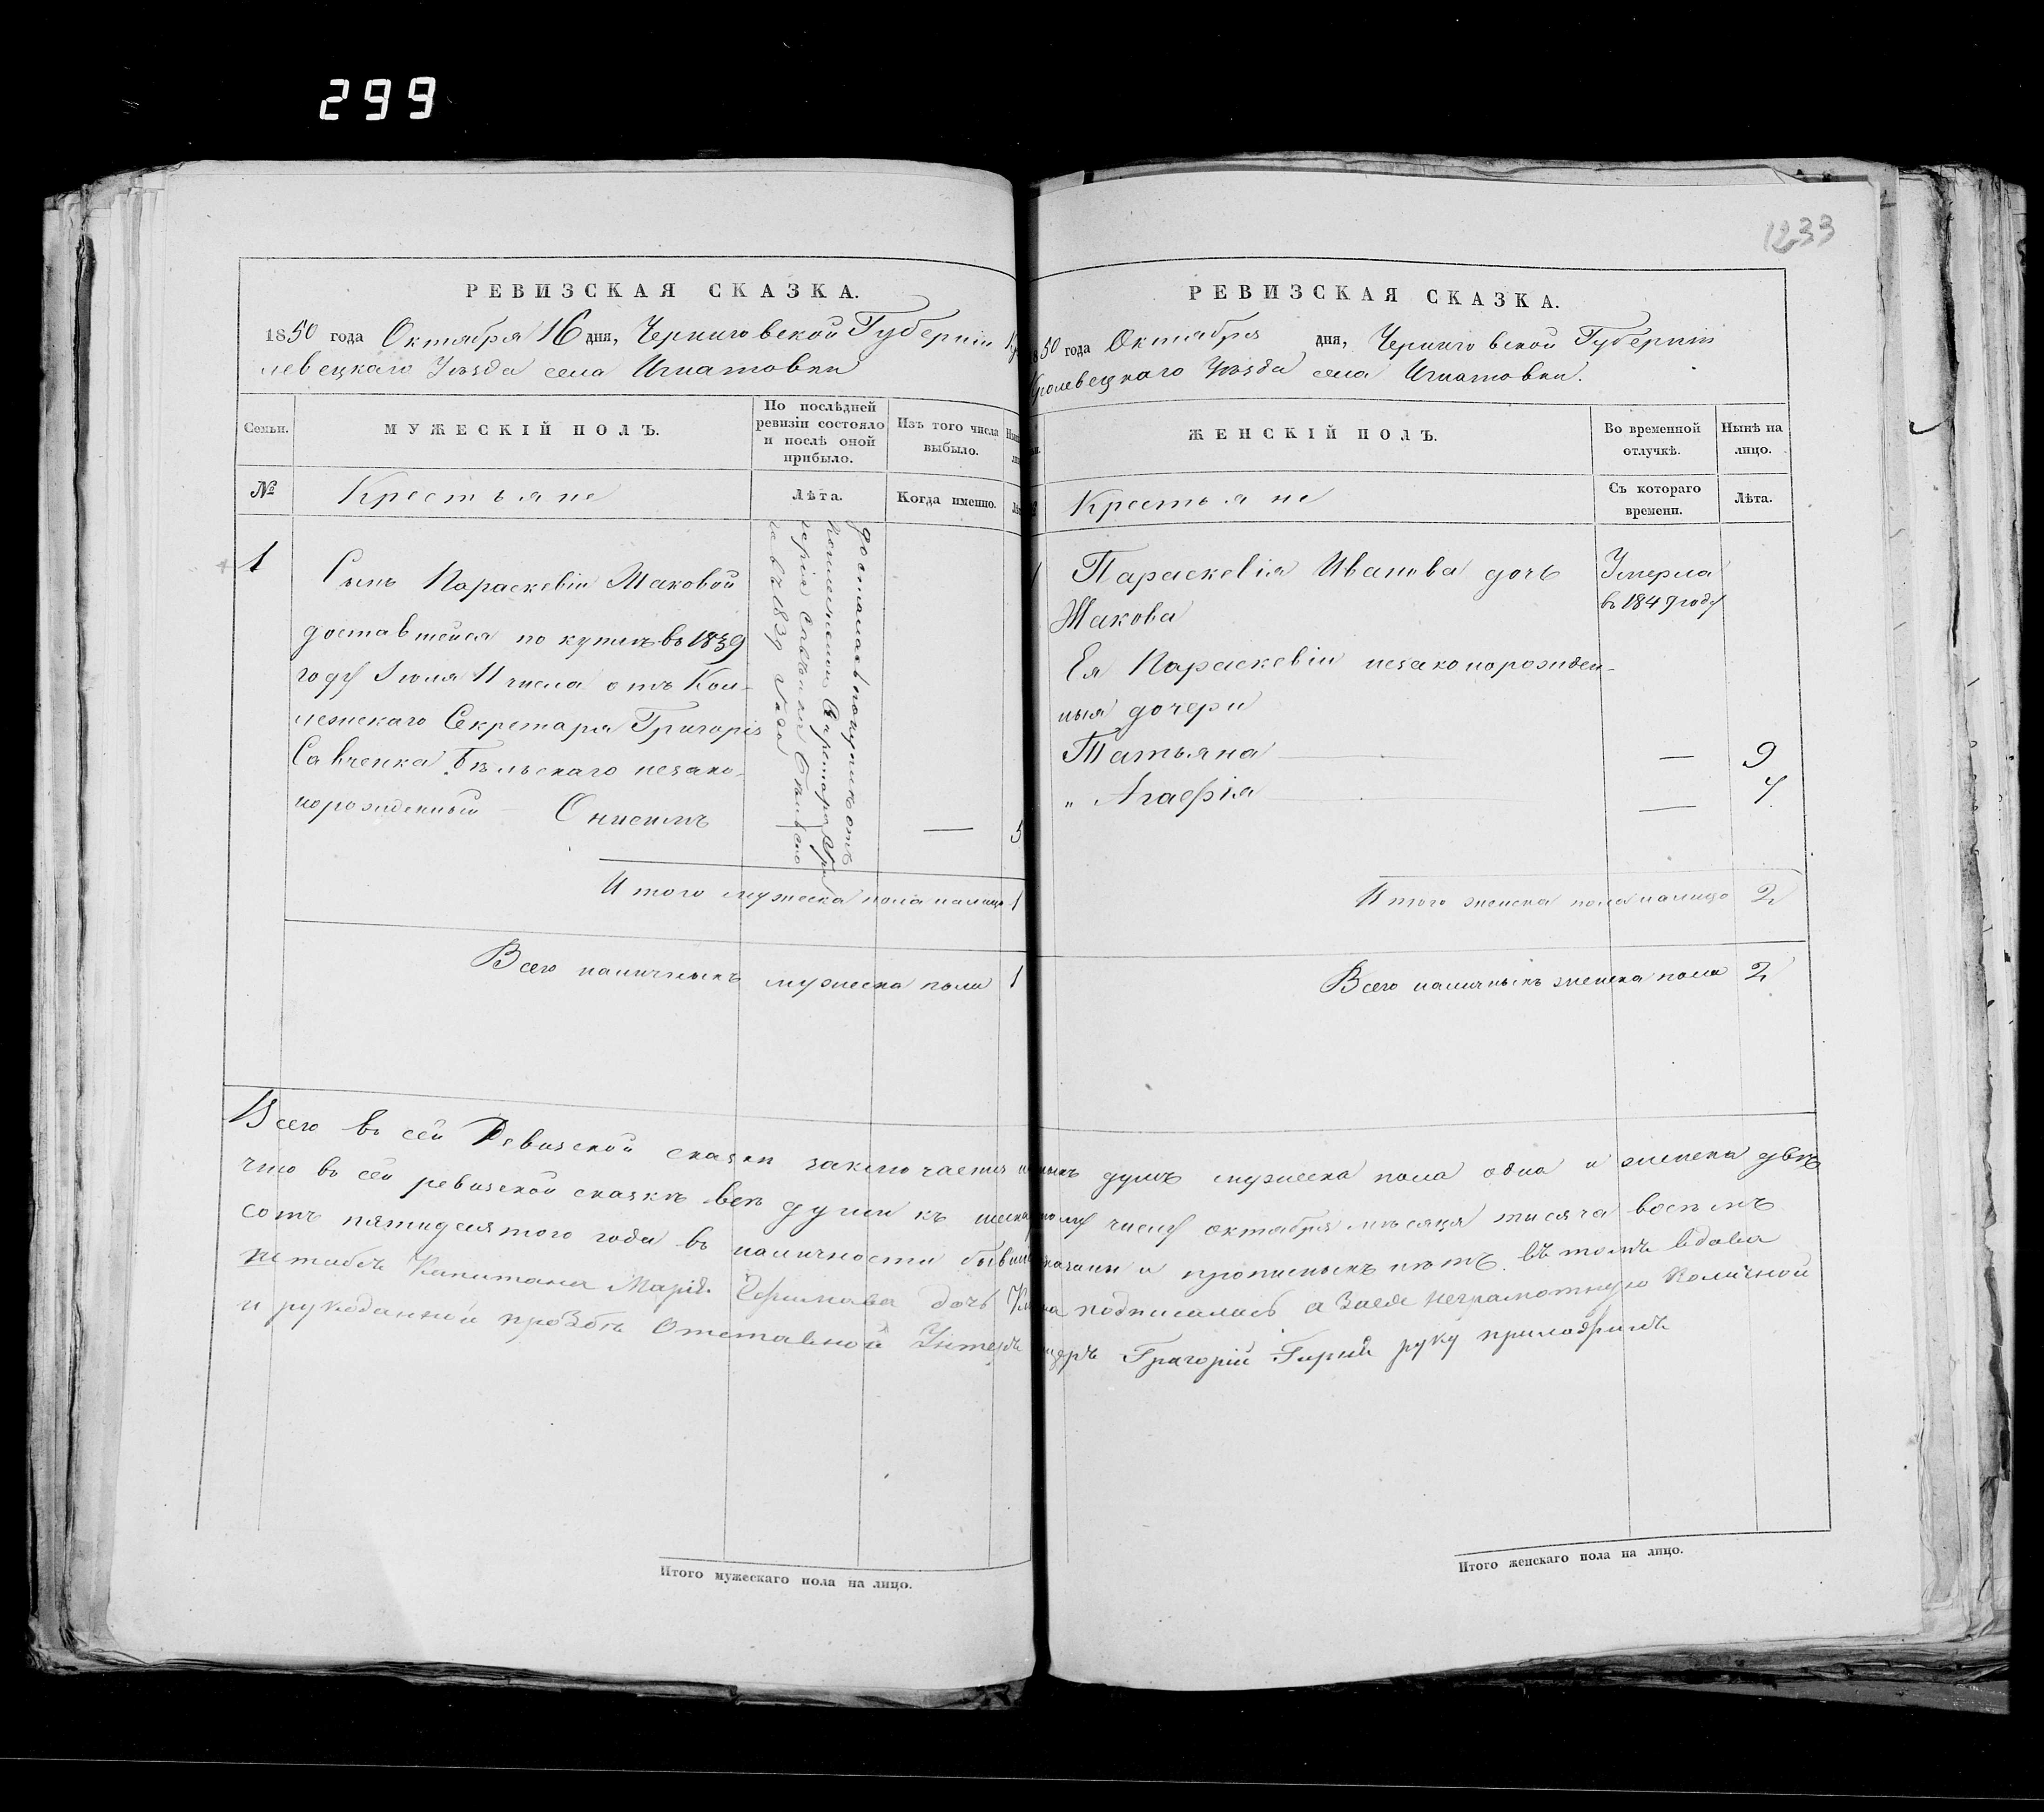 299
1233
РЕВИЗСКАЯ СКАЗКА.
1850 года Октября 16 дня, Черниговской Губерніи
левецкаго Уѣзда села Игнатовки
Семьи.
МУЖЕСКІЙ ПОЛЪ.
По послѣдней
ревизіи состояло
и послѣ оной
прибыло.
Изъ того числа
выбыло.
№
Крестьяне
Лѣта.
Когда именно.
1
Сынъ Параскевіи Жаковой
доставшейся по купли въ 1839
году Іюля 11 числа отъ Кол-
лежскаго Секретаря Григорія
Савченка Бѣльскаго незако-
норожденный Онисимъ
досталась по купли отъ
Коллежскаго Секретаря Гри
горія Савченка Бѣльскаго
въ 1839 года
—
5
Итого мужеска пола налицо 1
Всего наличныхъ мужеска пола 1
РЕВИЗСКАЯ СКАЗКА.
1850 года Октября дня, Черниговской Губерніи
Кролевецкаго Уѣзда села Игнатовки.
ЖЕНСКІЙ ПОЛЪ.
Во временной
отлучкѣ.
Нынѣ на
лицо.
Крестьяне
Съ котораго
времени.
Лѣта.
Параскевія Иванова дочь
Жакова
Умерла
въ 1849 году
Ея Параскевіи незаконорожден-
ныя дочери
Татьяна — 9
„ Агафія — 7
Итого женска пола налицо 2
Всего наличныхъ женска пола 2
Всего въ сей Ревизской сказки заключается ныхъ душъ мужеска пола одна и женска двѣ
что въ сей ревизской сказкѣ всѣ души къ числу октября мѣсяца тысяча восемь
сотъ пятидесятого года въ наличности бывшія показаны и прописныхъ нѣтъ въ томъ вдова
Штабсъ Капитана Марія дочь подписалась а Заея неграмотную Поличной
и рукоданной прозбѣ Отставной Унтеръ Григорій руку приложилъ
Итого мужескаго пола на лицо.
Итого женскаго пола на лицо.